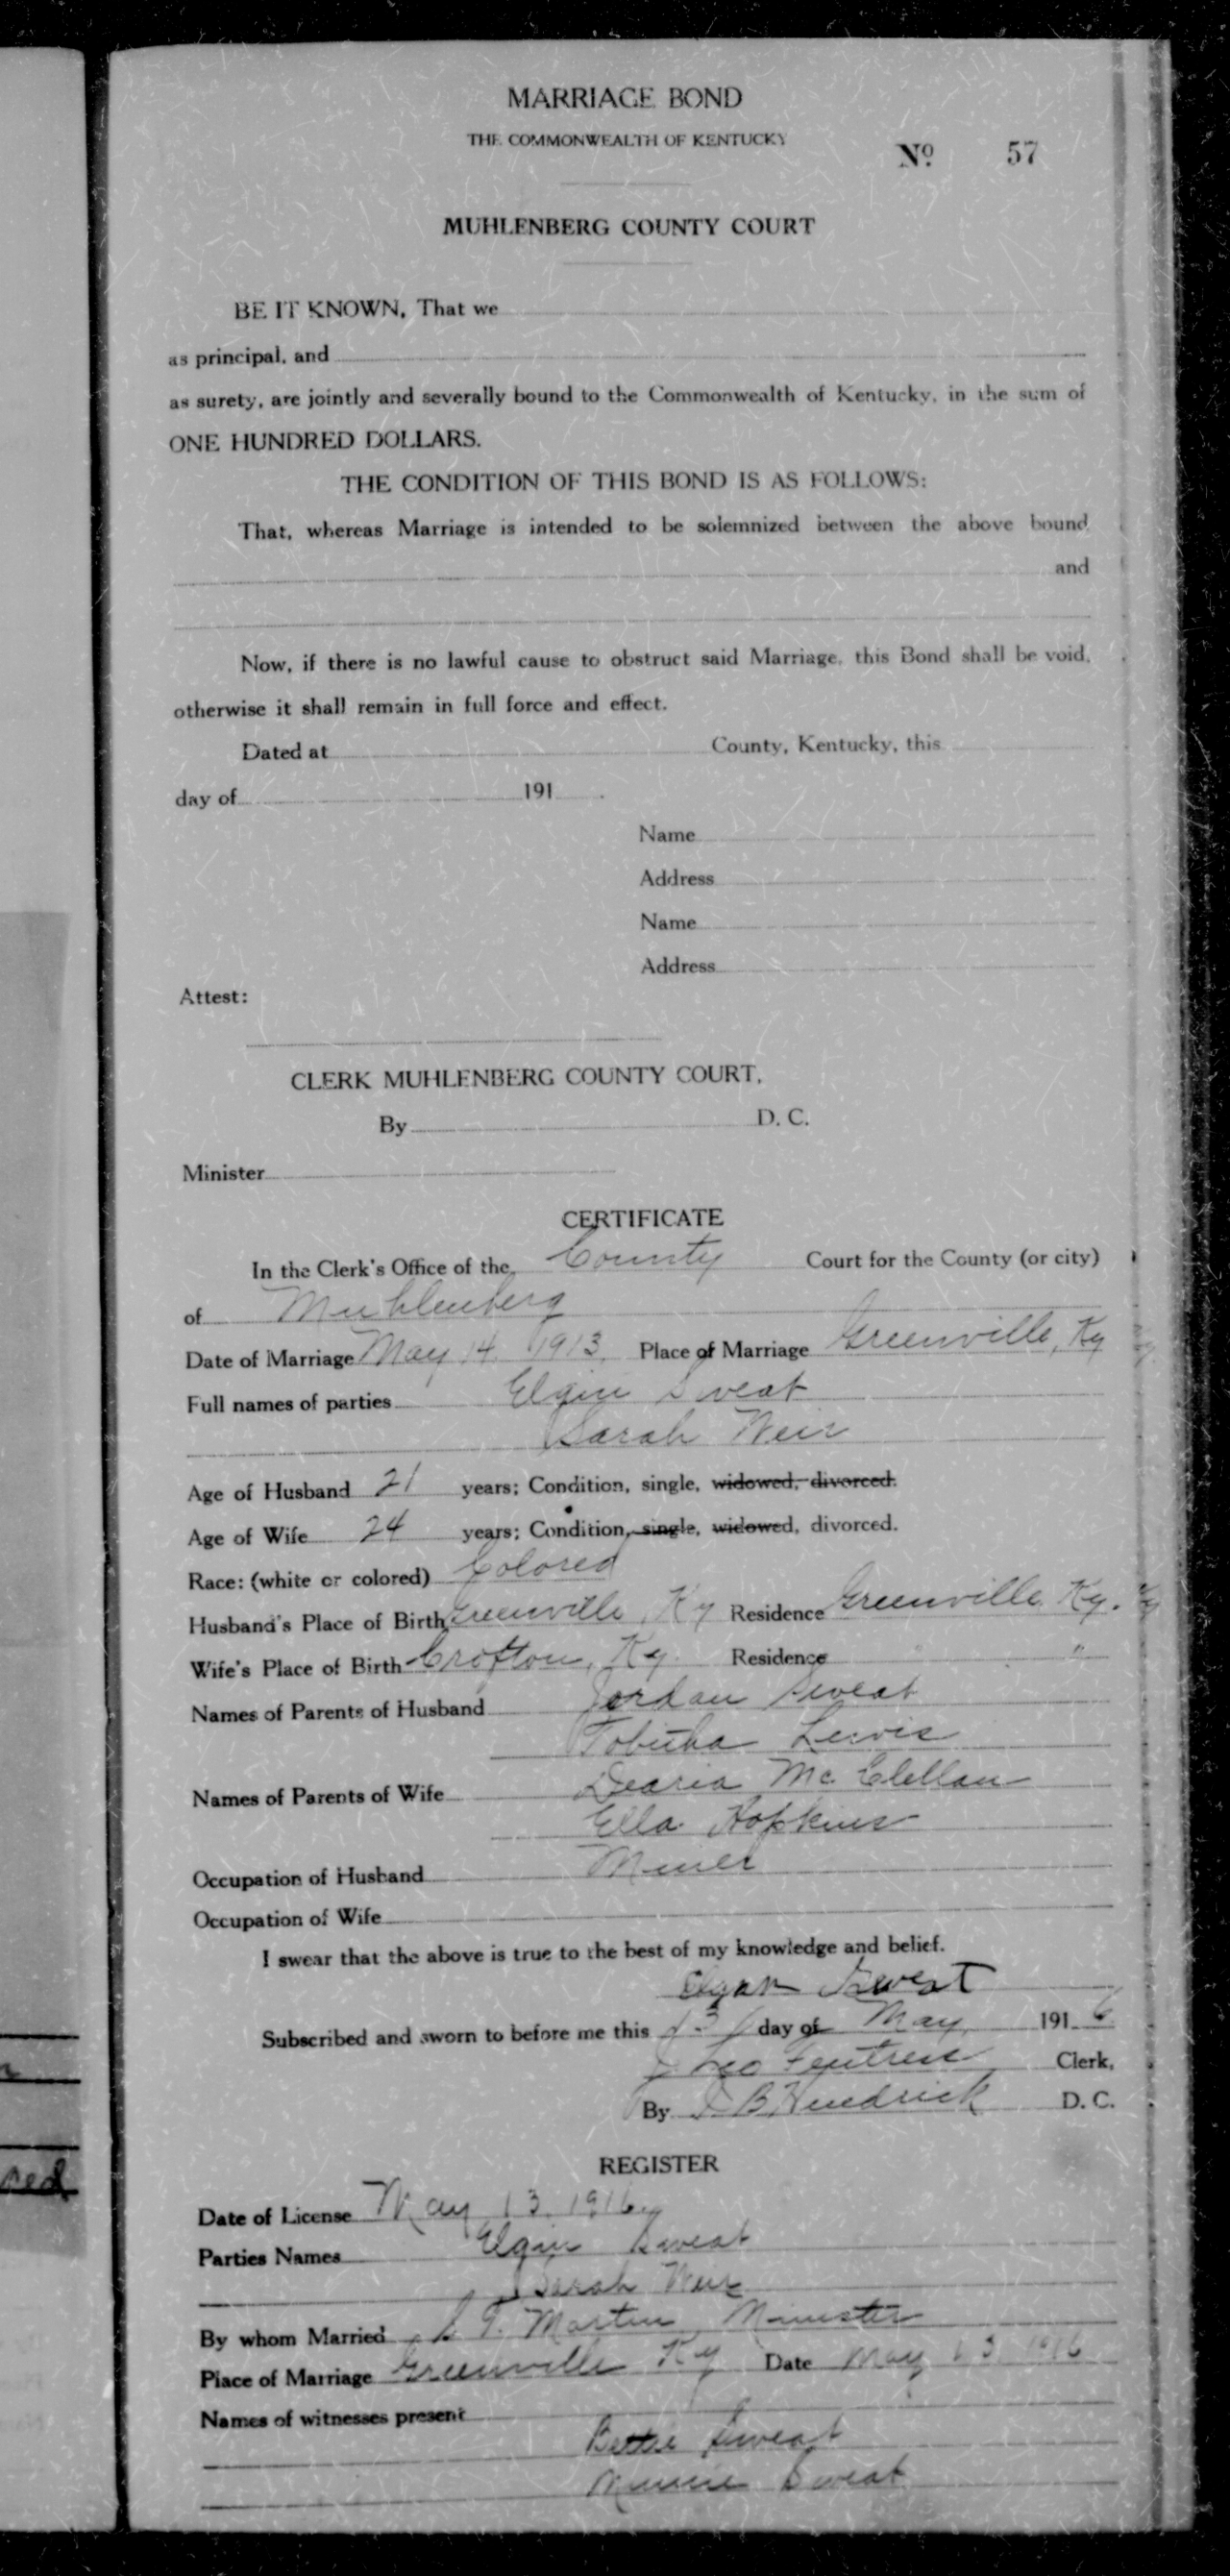 MARRIAGE BOND
THE COMMONWEALTH OF KENTUCKY
No. 57
MUHLENBERG COUNTY COURT
BE IT KNOWN, That we
as principal, and
as surety, are jointly and severally bound to the Commonwealth of Kentucky, in the sum of
ONE HUNDRED DOLLARS.
THE CONDITION OF THIS BOND IS AS FOLLOWS:
That, whereas Marriage is intended to be solemnized between the above bound
and
Now, if there is no lawful cause to obstruct said Marriage, this Bond shall be void,
otherwise it shall remain in full force and effect.
Dated at County, Kentucky, this
day of 191
Name
Address
Name
Address
Attest:
CLERK MUHLENBERG COUNTY COURT,
By D. C.
Minister
CERTIFICATE
In the Clerk's Office of the County Court for the County (or city)
of Muhlenberg
Date of Marriage May 14 1913. Place of Marriage Greenville, Ky
Full names of parties Elgin Sweat
Sarah Weir
Age of Husband 21 years; Condition, single, widowed, divorced.
Age of Wife 24 years; Condition, single, widowed, divorced.
Race: (white or colored) Colored
Husband's Place of Birth Greenville, Ky Residence Greenville Ky.
Wife's Place of Birth Crofton, Ky. Residence " "
Names of Parents of Husband Jordan Sweat
Lewis
Names of Parents of Wife Mc Clellan
Ella Hopkins
Occupation of Husband Miner
Occupation of Wife
I swear that the above is true to the best of my knowledge and belief.
Elgan Swest
Subscribed and sworn to before me this day of May, 191 6
Leo Fentress Clerk,
By Hendrick D. C.
REGISTER
Date of License May 13 1916
Parties Names Elgin Sweat
Sarah Weir
By whom Married Martin Minister
Place of Marriage Greenville Ky Date May 13 1916
Names of witnesses present
Bettie Sweat
Sweat